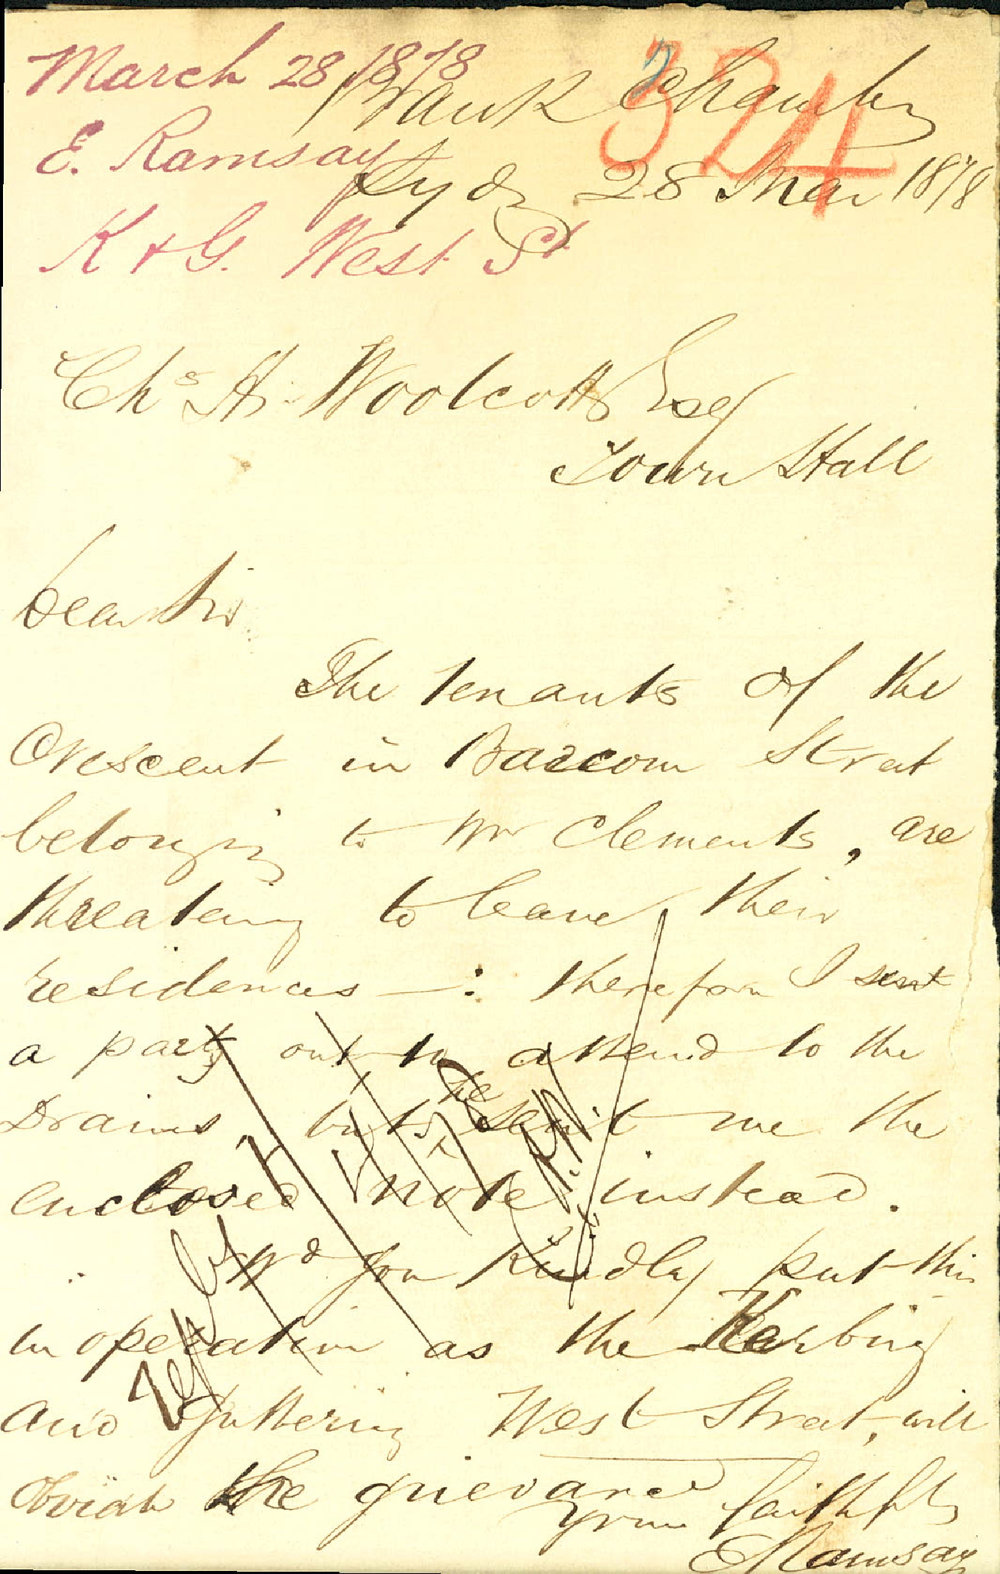 March 28 1878
E. Ramsay
K & G. West St
324
Bank Chambers
Sydn 28 Mar 1878
Chs H. Woolcott Esq
Town Hall
Dear Sir
The tenants of the
Crescent in Barcom Street
belonging to Mr Clements, are
threatening to leave their
residences —: therefore I sent
a party out to attend to the
Drains, but he sent me the
enclosed note instead.
Wd you Kindly put this
in operation as the Kerbing
and guttering West Street, will
obviate the grievance
Yours faithfully
E Ramsay